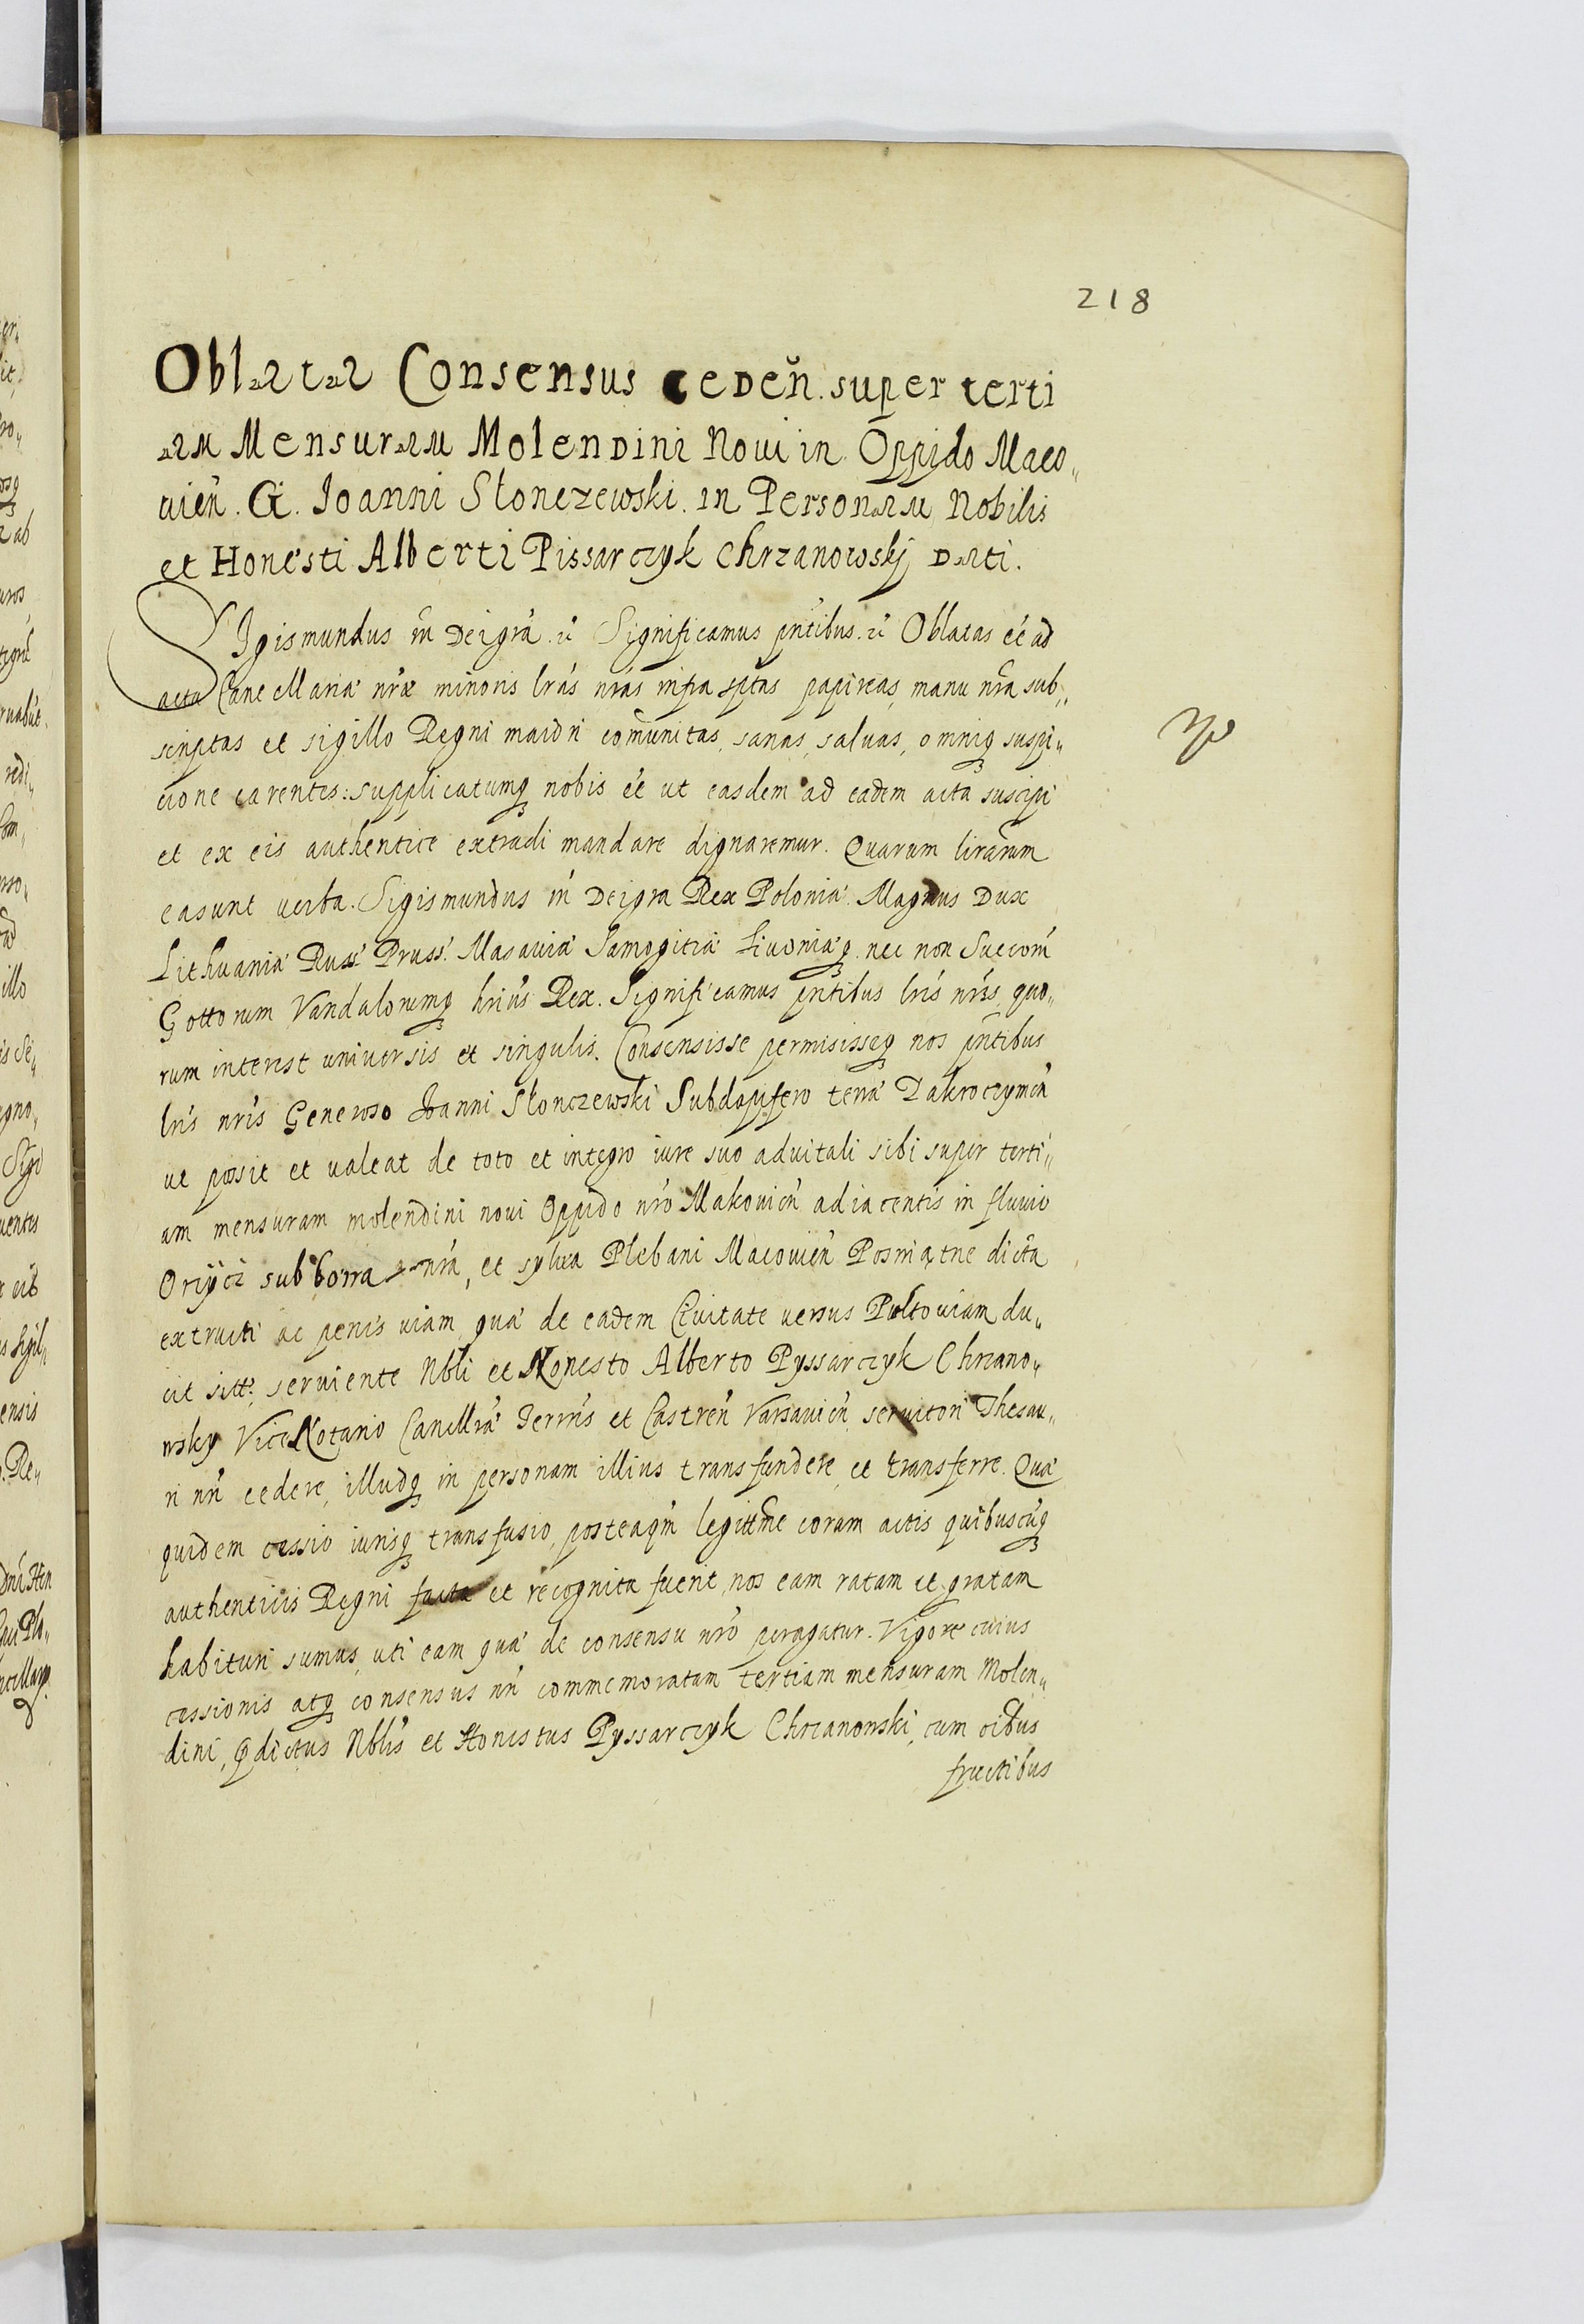 218
Oblata Consensus ceden̄. super terti
am Mensuram Molendini Noui in Oppido Maco„
uien̄. G. Joanni Slonczewski. in Personam Nobilis
et Honesti Alberti Pissarczyk Chrzanowskj Dati.
SIgismundus iii Dei gra. Significamus pntibus. Oblatas eē ad
acta Cancellariæ nræ minoris lras nras infra sptas papireas, manu nra sub„
scriptas et sigillo Regni maiori comunitas, sanas, saluas, omniq suspi„
cione carentes: supplicatumq nobis eē ut easdem ad eadem acta suscipi
et ex eis authentice extradi mandare dignaremur. Quarum lrarum
ea sunt uerba. Sigismundus iii Dei gra Rex Poloniæ. Magnus Dux
Lithuaniæ Russ Pruss. Masouiæ Samogitiæ Liuoniæq. nec non Suecorū
Gottorum Vandalorumq hrius Rex. Significamus pntibus lris nris, quo„
rum interest uniuersis et singulis. Consensisse permisisseq nos pntibus
lris nris Generoso Joanni Slonczewski Subdapifero terræ Zakroczymen̄
ut possit et ualeat de toto et integro iure suo aduitali sibi super terti„
am mensuram molendini noui Oppido nro Makouien̄ adiacentis in fluuio
Orzyci sub borra nra, et sylua Plebani Macouien̄ dicta
extructi ac penes uiam, quæ de eadem Ciuitate uersus Pultouiam du„
cit seruiente Nbli et Honesto Alberto Pyssarczyk Chrzano„
wsky ViceNotario Cancllriæ Terrris et Castren̄ Varsauien̄ seruitori Thesau„
ri nri cedere, illudq in personam illius transfundere et transferre. Quæ
quidem cessio iurisq transfusio, posteaqm legittme coram actis quibuscuq
authenticis Regni facta et recognita fuerit, nos eam ratam et gratam
habituri sumus, uti eam quæ de consensu nro peragatur. Vigore cuius
cessionis atq consensus nri commemoratam tertiam mensuram Molen„
dini, pdictus Nblis et Honestus Pyssarczyk Chrzanowski, cum oibus
fructibus